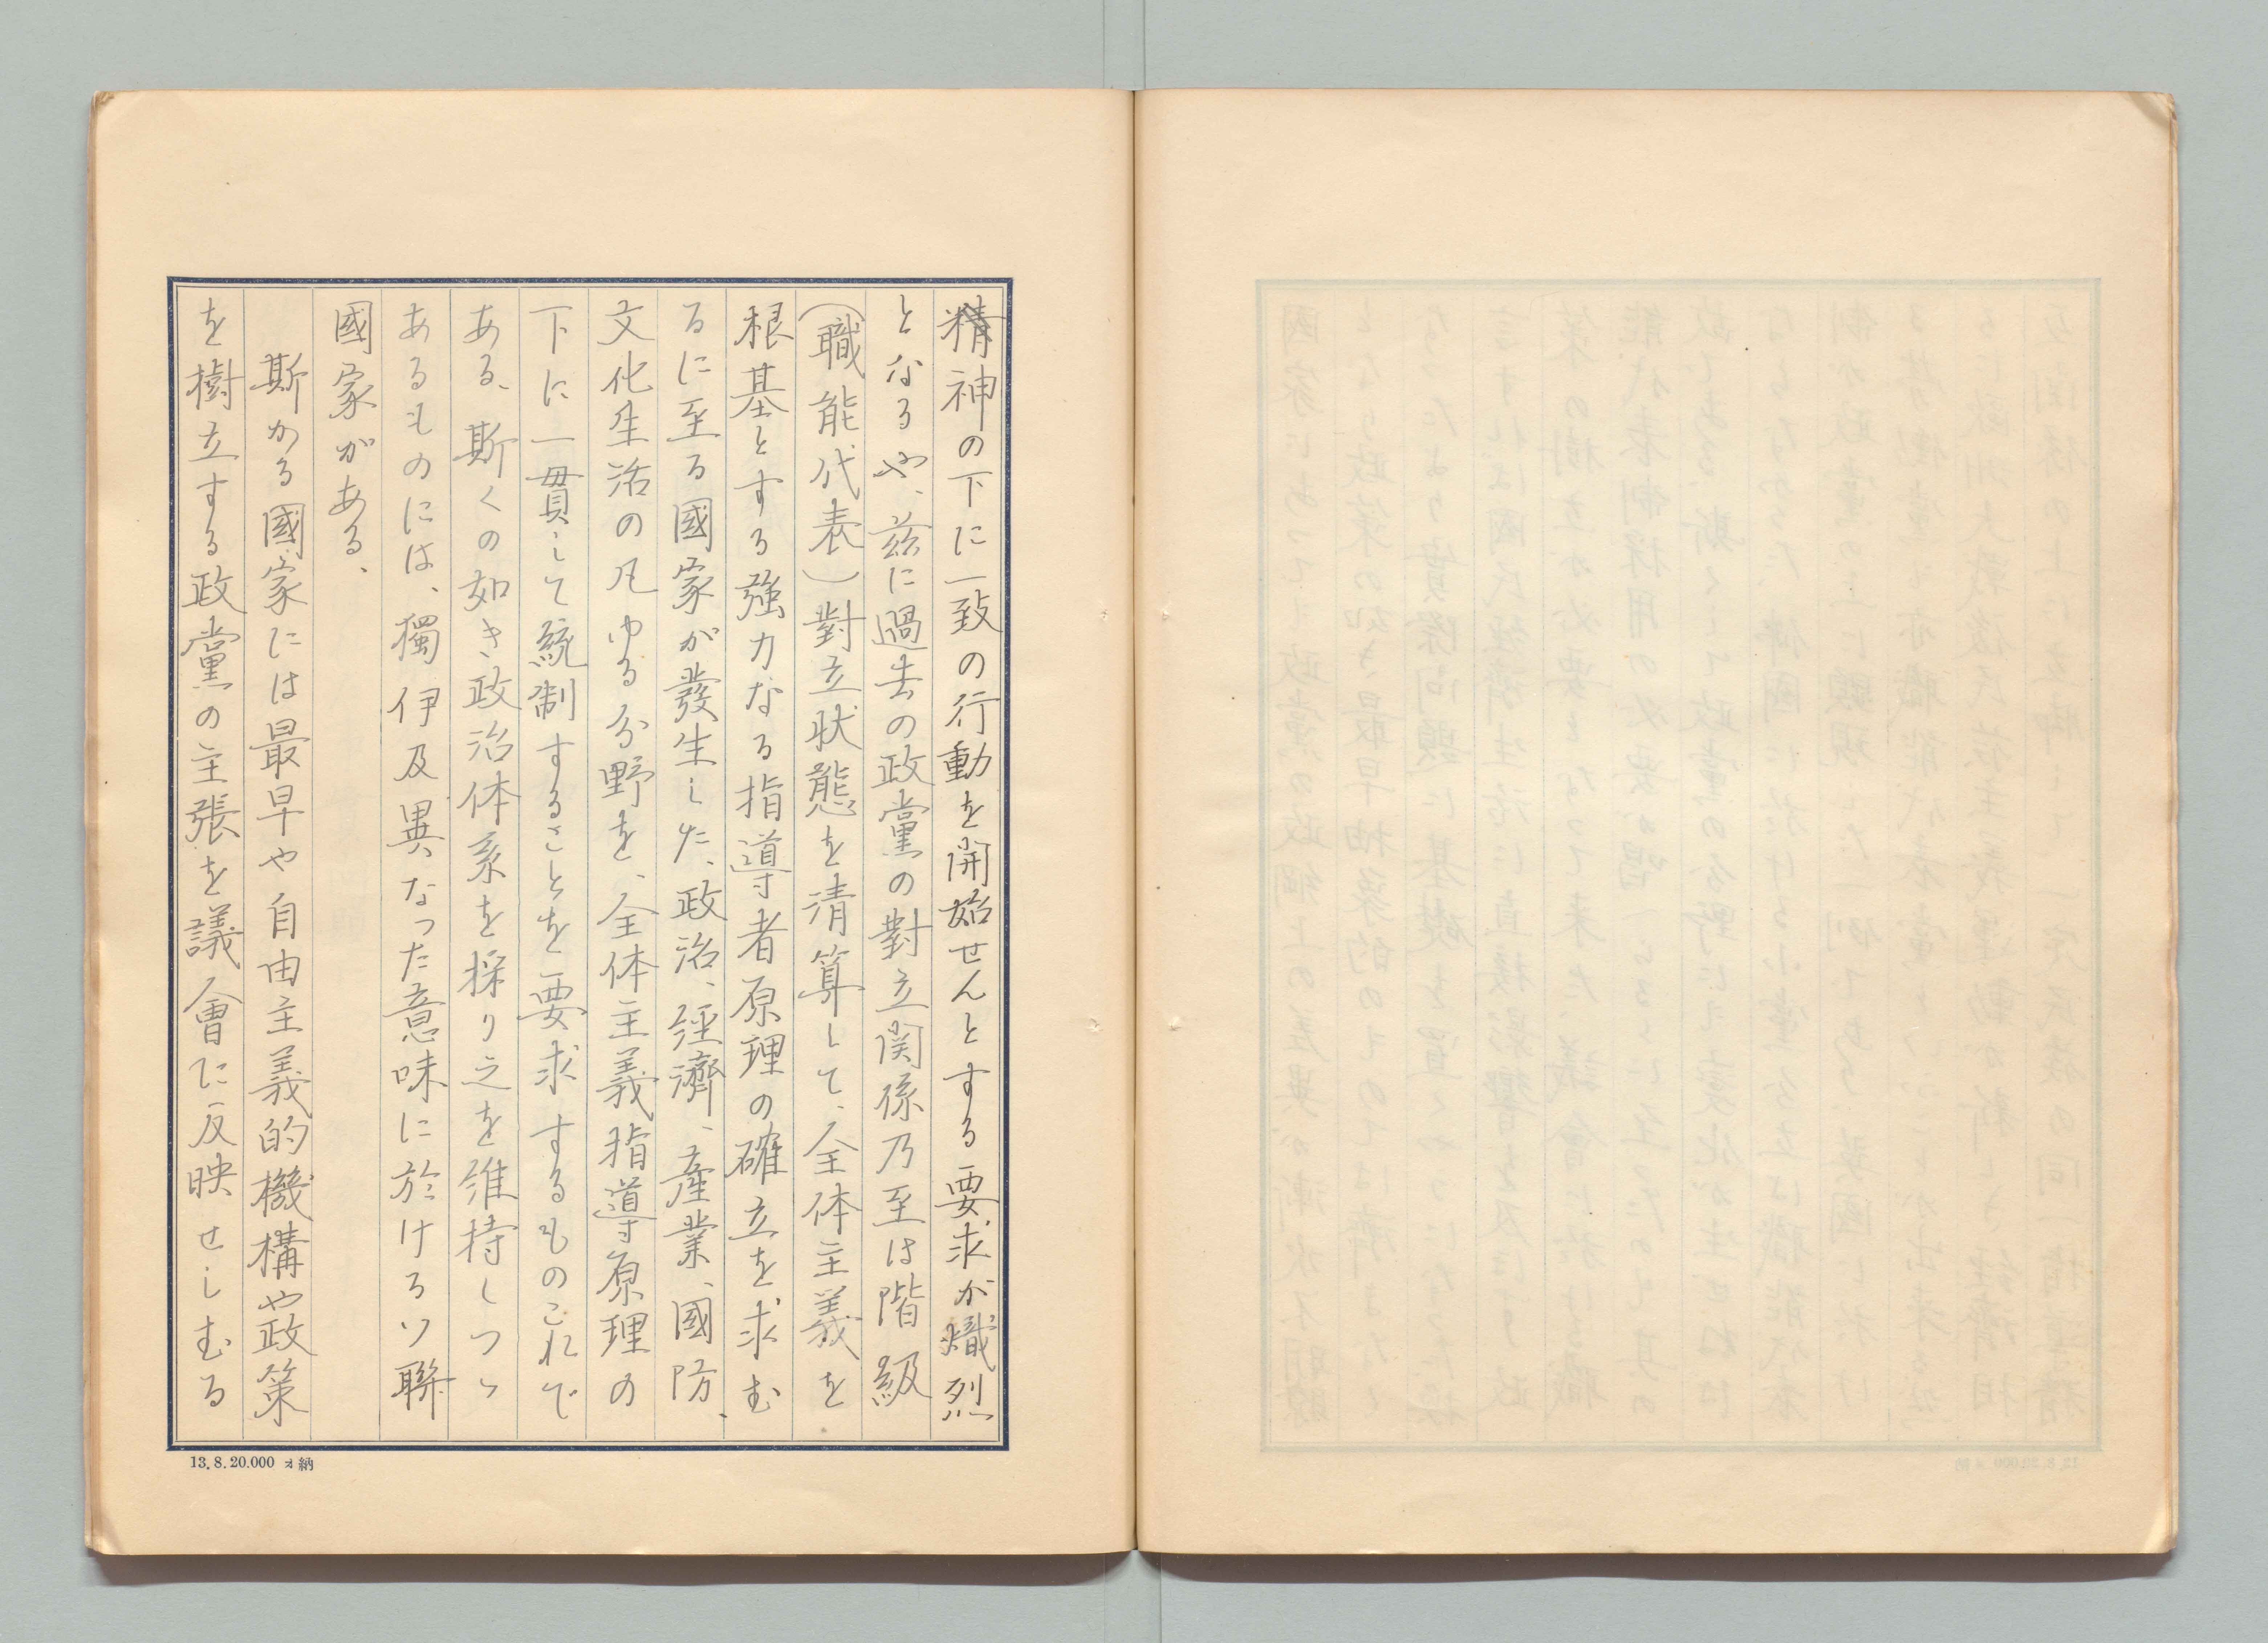 精神の下に一致の行動を開始せんとする要求が熾烈
となるや、茲に過去の政黨の對立関係乃至は階級
(職能代表)對立状態を清算して、全体主義を
根基とする強力なる指導者原理の確立を求む
るに至る國家が發生した、政治、經濟、産業、國防、
文化生活の凡ゆる分野を、全体主義指導原理の
下に一貫して統制することを要求するものこれで
ある、斯くの如き政治体系を採り之を維持しつゝ
あるものには、獨伊及異なった意味に於けるソ聯
國家がある、
斯かる國家には最早や自由主義的機構や政策
を樹立する政黨の主張を議會に反映せしむる
13.8.20.000 ォ納